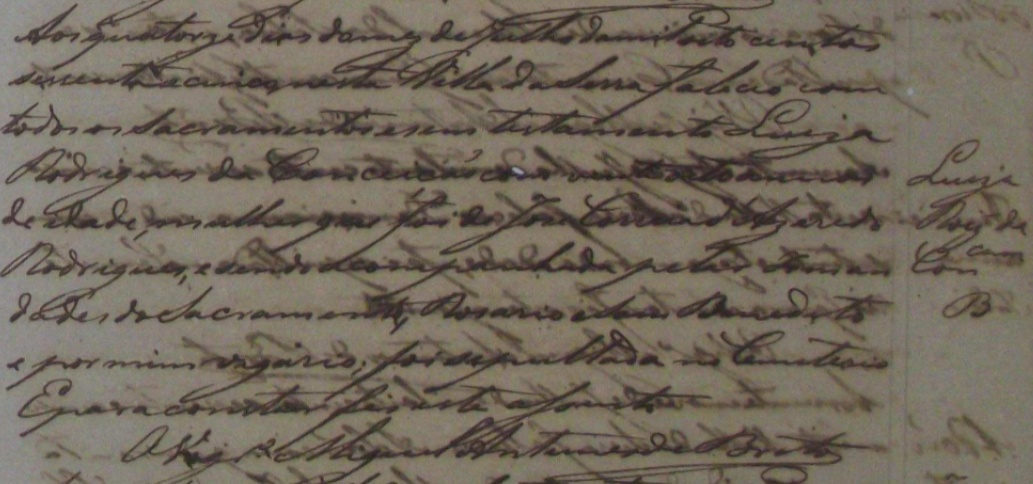 Aos quatorze dias do mes de Julho de mil oito centos
sessenta e cinco nesta Villa da Serra faleceo com
todos os Sacramentos e sem testamento Luiza
Rodrigues da Conceicão com vinte oito annos
de idade, mulher que foi de José Correia d'Azeredo
Rodrigues, e sendo acompanhada pelas Irman
dades do Sacramento, Rosario e Sam Benedicto
e por mim vigario, foi sepultada no Cemiterio
E para constar fiz este assento
O Vigr.º Miguel Antunes de Brito
Luiza
Roiz da
Concam
B